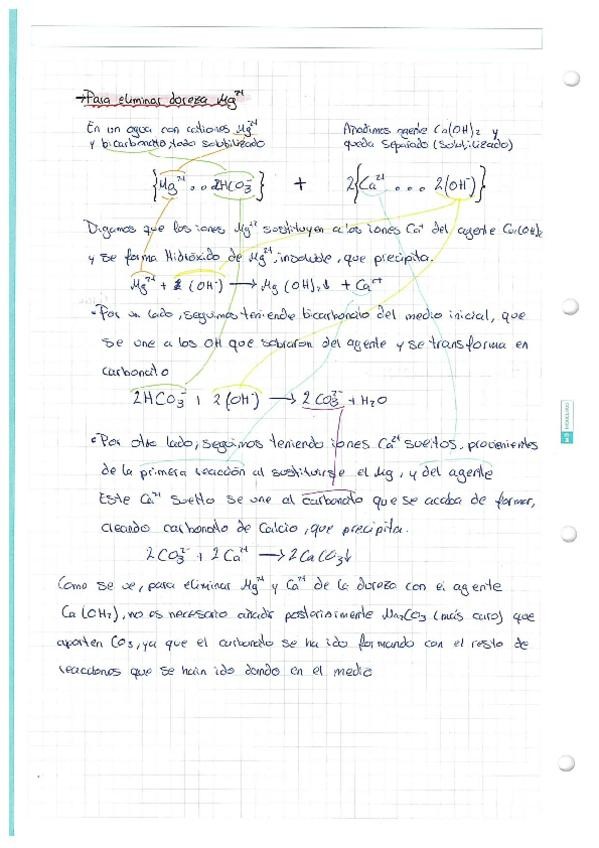 →Para eliminar dureza Mg²⁺
En un agua con cationes Mg²⁺
y bicarbonato todo solubilizado
Añadimos agente Ca(OH)₂ y
queda separado (solubilizado)
{Mg²⁺...2HCO₃⁻} + 2{Ca²⁺... 2(OH⁻)}
Digamos que los iones Mg²⁺ sustituyen a los iones Ca²⁺ del agente Ca(OH)₂
y se forma Hidróxido de Mg²⁺, insoluble, que precipita.
Mg²⁺ + 2 (OH⁻) → Mg (OH)₂↓ + Ca²⁺
• Por un lado, seguimos teniendo bicarbonato del medio inicial, que
se une a los OH que sobraron del agente y se transforma en
carbonato
2HCO₃⁻ + 2(OH⁻) → 2 CO₃²⁻ + H₂O
• Por otro lado, seguimos teniendo iones Ca²⁺ sueltos, provenientes
de la primera reacción al sustituirse el Mg, y del agente
Este Ca²⁺ suelto se une al carbonato que se acaba de formar,
creando carbonato de Calcio, que precipita.
2 CO₃²⁻ + 2 Ca²⁺ → 2 CaCO₃↓
Como se ve, para eliminar Mg²⁺ y Ca²⁺ de la dureza con el agente
Ca(OH₂), no es necesario añadir posteriormente Na₂CO₃ (más caro) que
aporten CO₃, ya que el carbonato se ha ido formando con el resto de
reacciones que se han ido dando en el medio